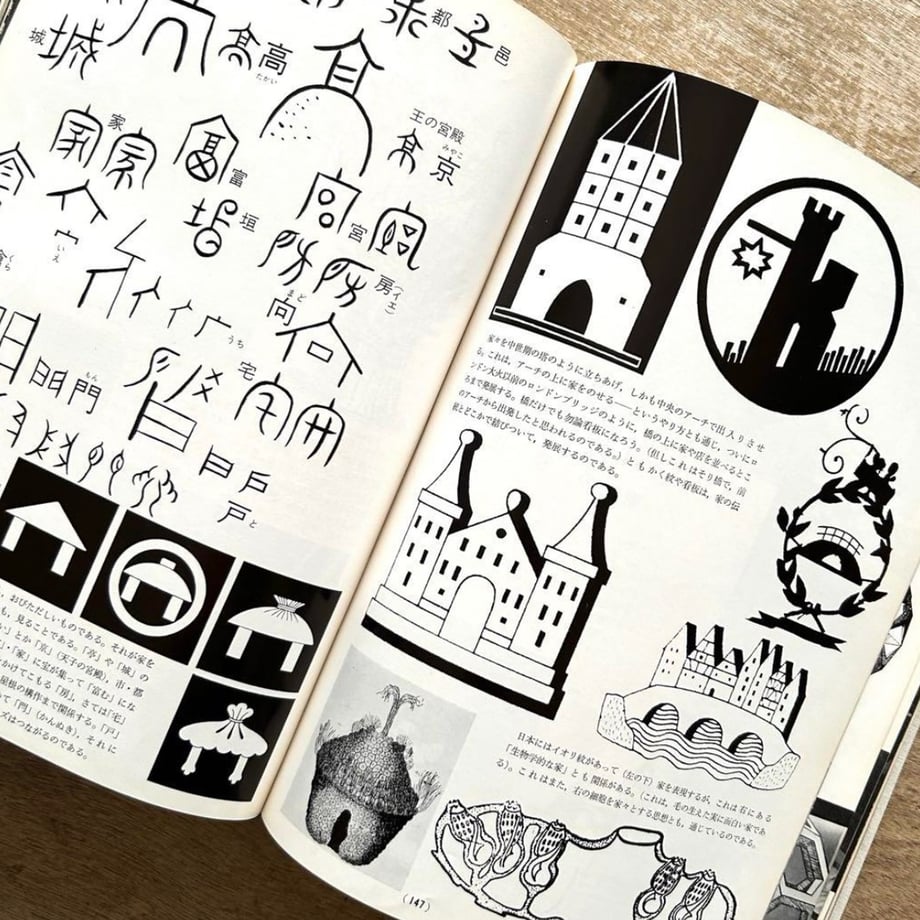 城
高
たかい
都
邑
王の宮殿
みやこ
京
家
富
垣
宮
房
(イエ)
いえ
まど
向
うち
宅
もん
門
戸
戸 と
おびただしいものである。それが家を
も,見ることである。「亭」や「城」の
とか「京」(天子の宮殿), 市・郡
・「家」に宝が集って「富む」にな
かけてこもる「房」, さては「宅」
屋根の構作まで関係する。「戸」
て「門」(かんぬき), それに
ズはつながるのである。
家々を中世期の塔のように立ちあげ, しかも中央のアーチで出入りさせ
る。これは, アーチの上に家をのせる——というやり方とも通じ, ついにロ
ンドン大火以前のロンドンブリッジのように, 橋の上に家や店を並べるとこ
ろまで発展する。橋だけでも勿論看板になろう。(但しこれはそり橋で, 前
のアーチから出発したと思われるのである。) ともかく紋や看板は, 家の伝
統とどこかで結びついて, 発展するのである。
日本にはイオリ紋があって (左の下) 家を表現するが, これは右にある
「生物学的な家」とも関係がある。(これは, 毛の生えた実に面白い家であ
る)。これはまた, 右の細胞を家々とする思想とも, 通じているのである。
(147)